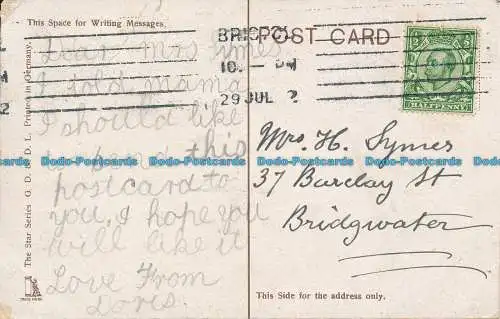 This Space for Writing Messages.
BRISTOL
POST CARD
10. - PM
29 JUL 2
HALFPENNY
Dear Mrs Symes
I told mama
I should like
to send this
postcard to
you, I hope you
will like it
Love From
Doris.
Mrs. H. Symes
37 Barclay St
Bridgwater
This Side for the address only.
The Star Series G. D. & D. L. Printed in Germany.
Bad-Postcards